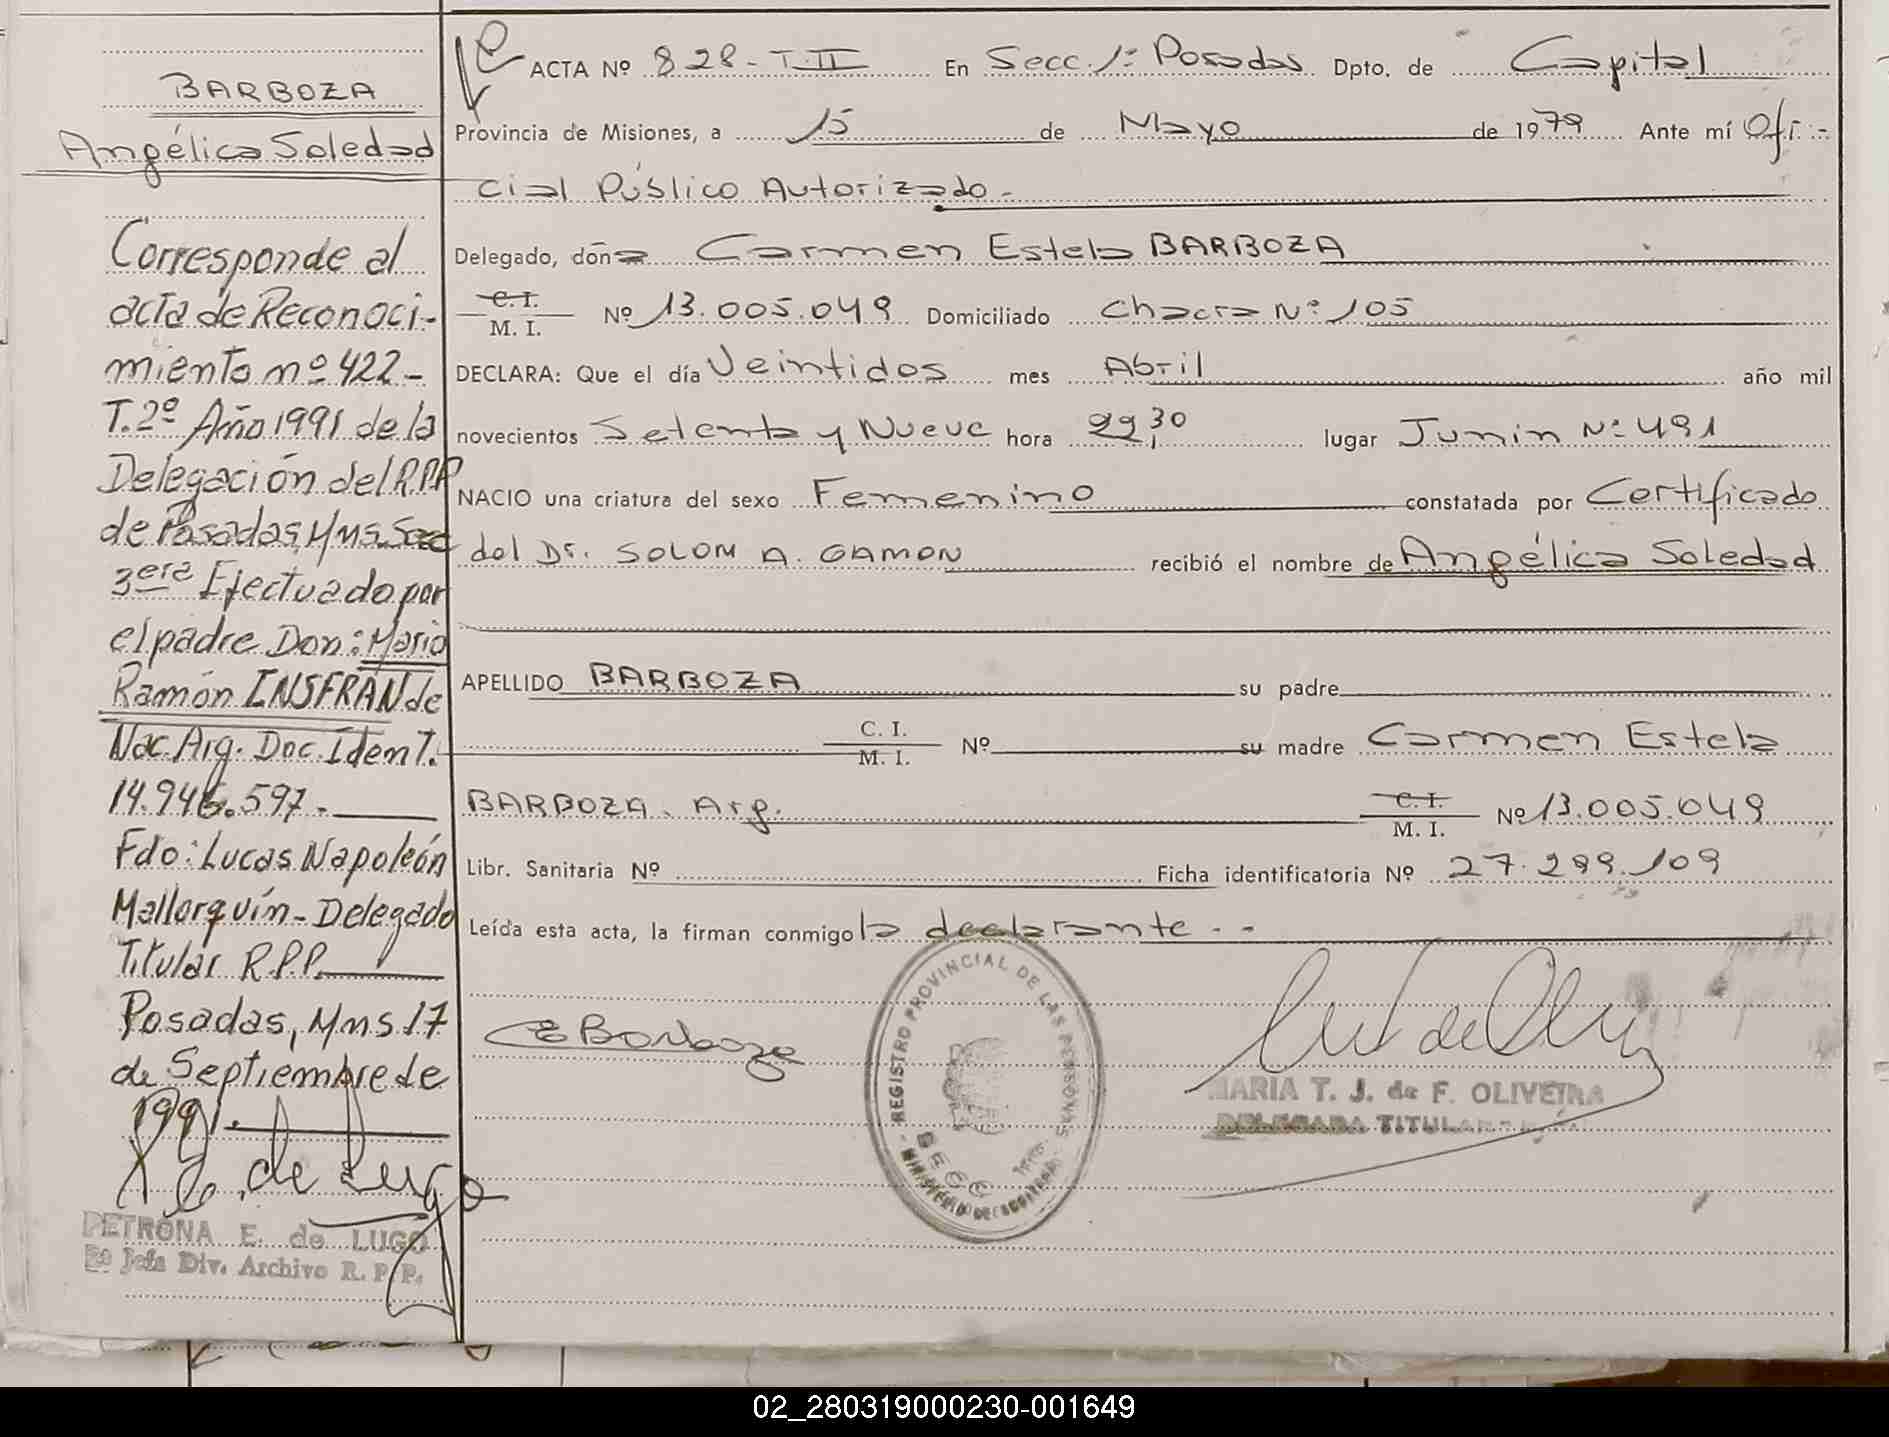 BARBOZA
Angélica Soledad
Corresponde al
acta de Reconoci-
miento nº 422-
T. 2º Año 1991 de la
Delegación del R.P.P
de Posadas, Mns. Secc
3era Efectuado por
el padre Don: Mario
Ramón INSFRAN de
Nac. Arg. Doc. Ident.
14.946.597.-
Fdo: Lucas Napoleón
Mallorquín - Delegado
Titular R.P.P.
Posadas, Mns 17
de Septiembre de
1991.
de Lugo
PETRONA E. de LUGO
Jefa Div. Archivo R. P. P.
ACTA Nº 828 - T. II En Secc. 1ª Posadas Dpto. de Capital
Provincia de Misiones, a 15 de Mayo de 1979 Ante mí Ofi-
cial Público Autorizado.-
Delegado, doña Carmen Estela BARBOZA
C. I.
M. I. Nº 13.005.049 Domiciliado Chacra Nº 105
DECLARA: Que el día Veintidos mes Abril año mil
novecientos Setenta y Nueve hora 22,30 lugar Junin Nº 491
NACIO una criatura del sexo Femenino constatada por Certificado
del Dr. SOLOM A. GAMON recibió el nombre de Angélica Soledad
APELLIDO BARBOZA su padre
C. I.
M. I. Nº su madre Carmen Estela
BARBOZA. Arg. C. I.
M. I. Nº 13.005.049
Libr. Sanitaria Nº Ficha identificatoria Nº 27.299.109
Leída esta acta, la firman conmigo la declarante.--
CE Barboza
REGISTRO PROVINCIAL DE LAS PERSONAS
SECC
MINISTERIO DE GOBIERNO
MARIA T. J. de F. OLIVEIRA
DELEGADA TITULAR
02_280319000230-001649